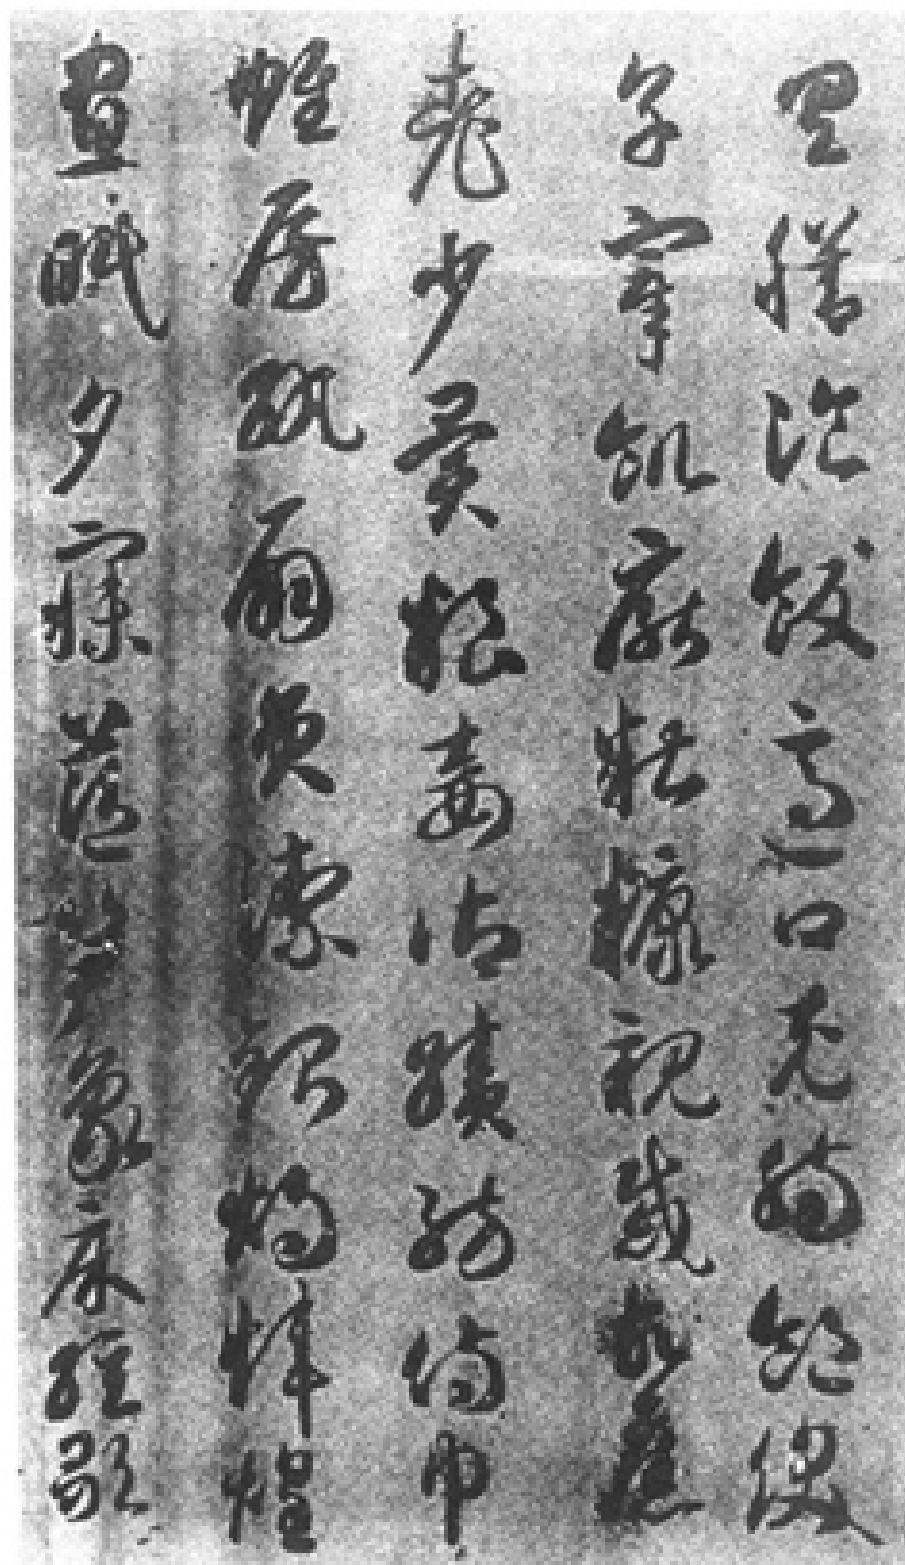 具膳飡飯適口充腸飽飫
享宰飢厭糟糠親戚故舊
老少異粮妾御績紡侍巾
帷房紈扇員潔銀燭煒煌
晝眠夕寐藍笋象床絃歌